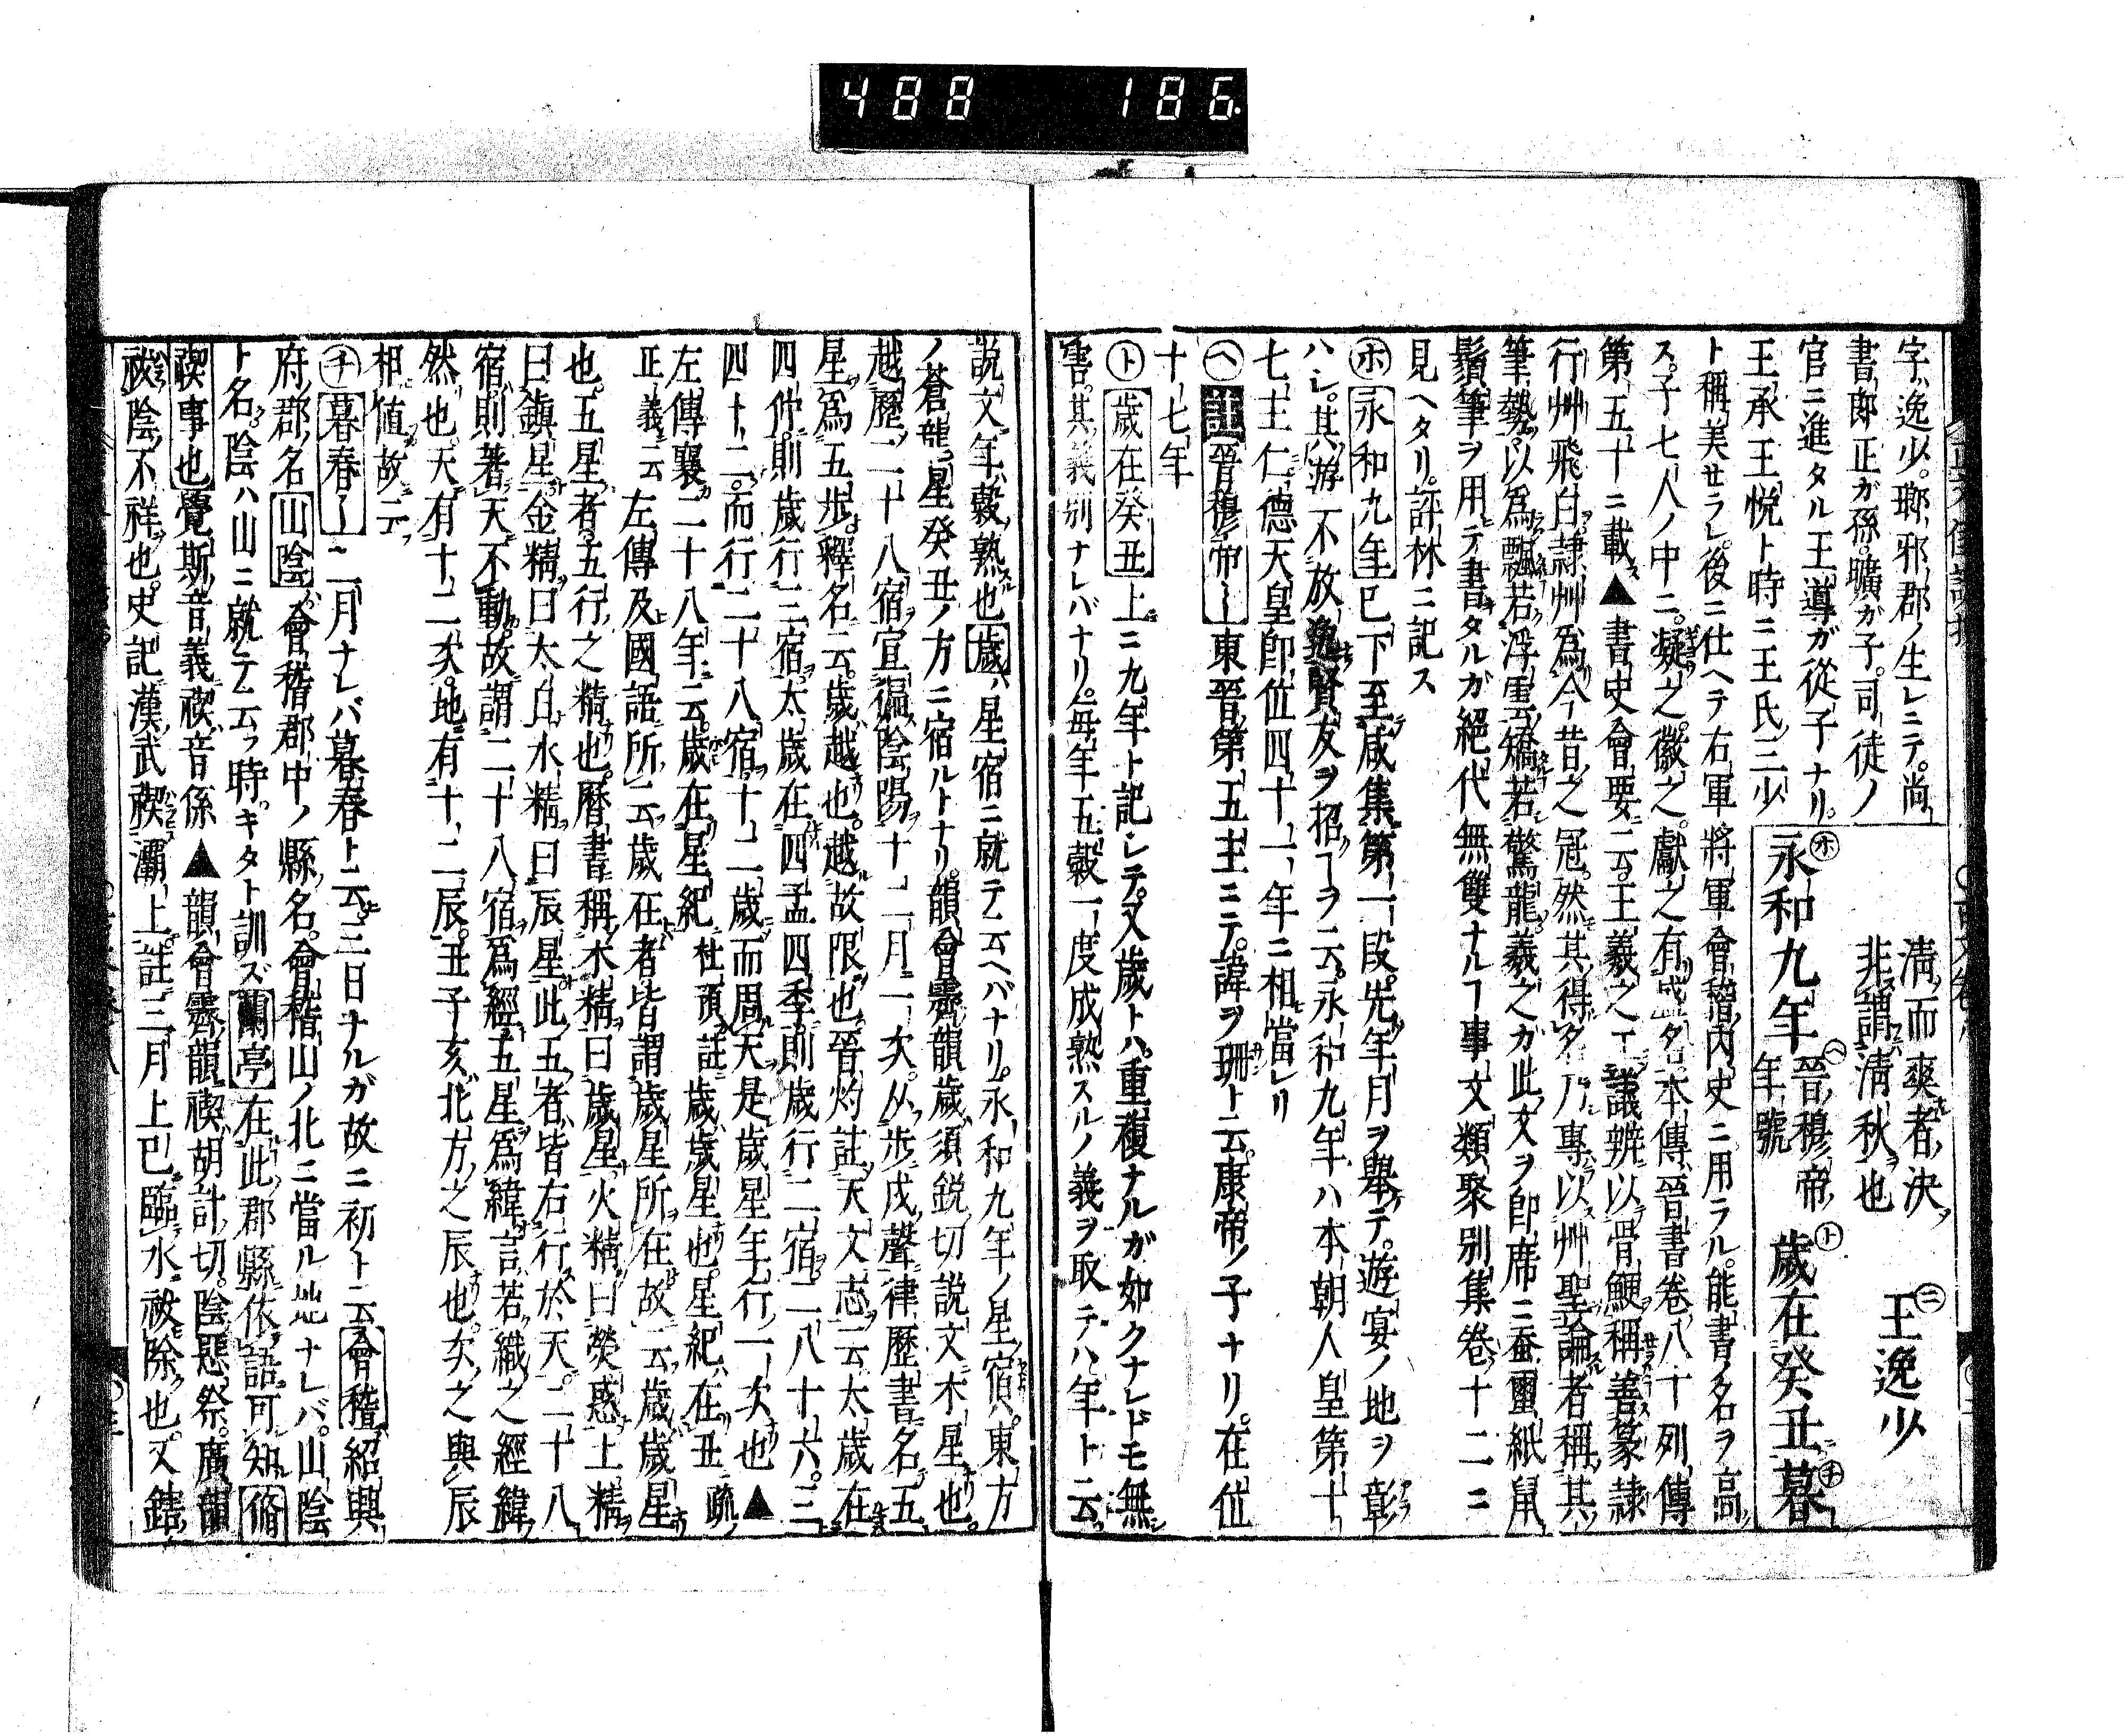 488 186.
清而爽者決
非謂清秋也
㊁王逸少
㋭永和九年㋬晉穆帝
年號
㋣歲在癸丑㋠暮
字逸少。瑯邪郡ノ生レニテ。尚
書郎正ガ孫。曠ガ子。司徒ノ
官ニ進タル王導ガ從子ナリ。
王承王悅ト時ニ王氏三少
ト稱美セラレ。後ニ仕ヘテ右軍將軍會稽內史ニ用ラル。能書ノ名ヲ高
ス。子七人ノ中ニ。凝之。徽之。獻之有盛名。本傳晉書卷八十列傳
第五十ニ載▲書史會要云。王羲之工議辨以骨鯁稱善篆隸
行艸飛白隷艸爲今昔之冠。然其得名乃專以艸聖論者稱其
筆勢以爲飄若浮雲矯若驚龍羲之ガ此文ヲ卽席ニ蚕蠒紙鼠
鬚筆ヲ用テ書タルガ絕代無雙ナルヿ事文類聚別集卷十二ニ
見ヘタリ。評林ニ記ス
㋭永和九年已下至咸集第一段。先年月ヲ擧テ。遊宴ノ地ヲ彰
ハシ。其游不放逸賢友ヲ招ヿヲ云。永和九年ハ本朝人皇第十
七主仁德天皇卽位四十一年ニ相當レリ
㋬註晉穆帝〡東晉第五主ニテ。諱ヲ珊ト云。康帝ノ子ナリ。在位
十七年
㋣歲在癸丑上ニ九年ト記シテ。又歲トハ。重複ナルガ如クナレドモ無
害。其義別ナレバナリ。每年五穀一度成熟スルノ義ヲ取テハ。年ト云
說文年穀熟也歲ハ星宿ニ就テ云ヘバナリ。永和九年ノ星宿。東方
ノ蒼龍星癸丑ノ方ニ宿ルトナリ。韻會霽韻歲須銳切說文木星也。
越歷二十八宿宣徧陰陽十二月一次。从步戌聲律歷書名五
星爲五步。釋名云。歲越也。越故限也晉灼註天文志云太歲在
四仲則歲行三宿太歲在四孟四季則歲行二宿二八十六。三
四十二。而行二十八宿十二歲而周天是歲星年行一次也▲
左傳襄二十八年云。歲在星紀 杜預註歲歲星也。星紀在丑 疏
正義云左傳及國語所云歲在者皆謂歲星所在故云歲歲星
也。五星者五行之精也。曆書稱木精曰歲星火精曰熒惑土精
曰鎭星金精曰太白水精曰辰星此五者皆右行於天。二十八
宿則著天不動。故謂二十八宿爲經五星爲緯言若織之經緯
然也。天有十二次。地有十二辰。丑子亥北方之辰也。次之與辰
相値故云
㋠暮春〡三月ナレバ暮春ト云。三日ナルガ故ニ初ト云會稽紹興
府ノ郡名山陰會稽郡中ノ縣名。會稽山ノ北ニ當ル地ナレバ。山陰
ト名。陰ハ山ニ就テ云フ時。キタト訓ズ蘭亭在此郡縣依語可知脩
禊事也覺斯音義禊音係▲韻會霽韻禊胡計切。除惡祭。廣韻
祓除不祥也。史記漢武禊灞上。註三月上巳臨水祓除也。又鐫